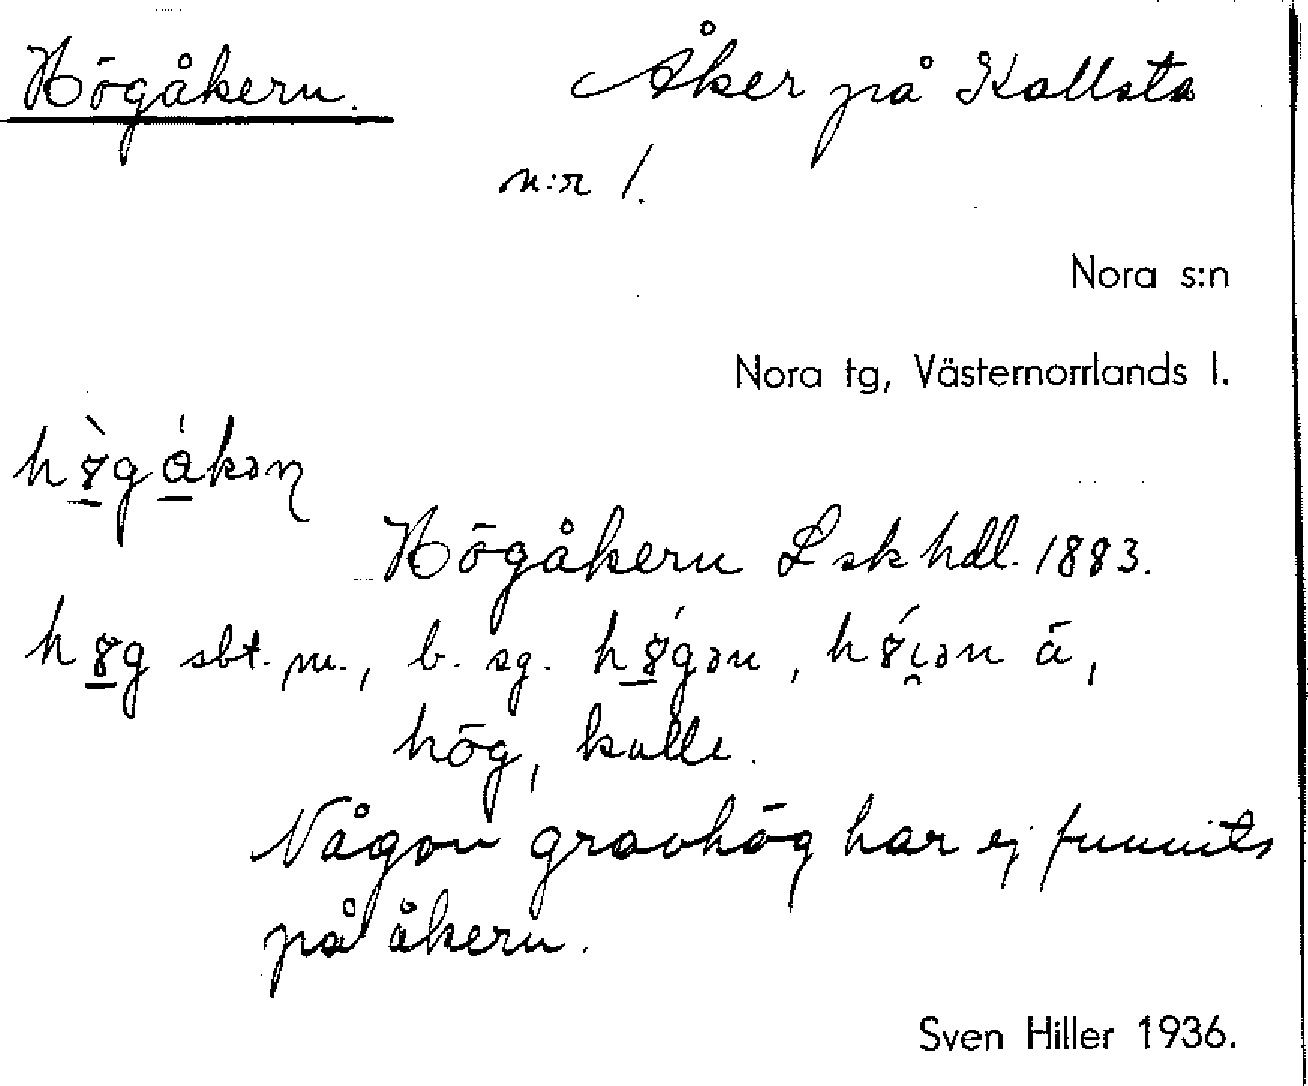 Högåkern. Åker på Kallsta
n:r 1.
Nora s:n
Nora tg, Västernorrlands l.
Högåkern Lskhdl. 1883.
sbt. m., b. sg. ä,
hög, kulle.
Någon gravhög har ej funnits
på åkern.
Sven Hiller 1936.